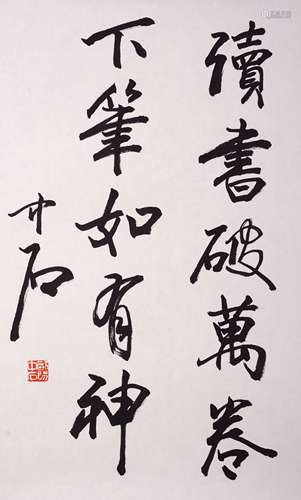 讀書破萬卷
下筆如有神
中石